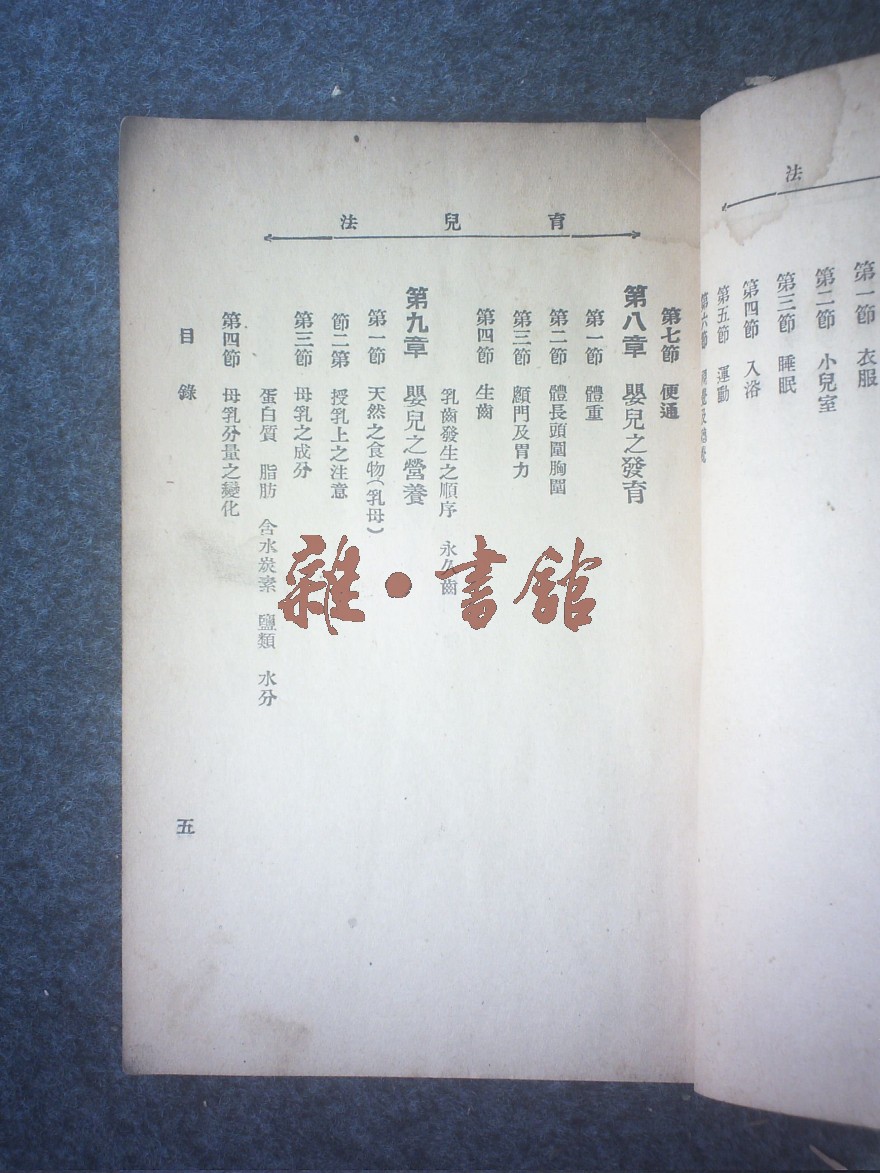 法
第一節 衣服
第二節 小兒室
第三節 睡眠
第四節 入浴
第五節 運動
第六節
育兒法
第七節 便通
第八章 嬰兒之發育
第一節 體重
第二節 體長頭圍胸圍
第三節 顖門及胃力
第四節 生齒
乳齒發生之順序 永久齒
第九章 嬰兒之營養
第一節 天然之食物(乳母)
節二第 授乳上之注意
第三節 母乳之成分
蛋白質 脂肪 含水炭素 鹽類 水分
第四節 母乳分量之變化
目錄
五
雜·書館